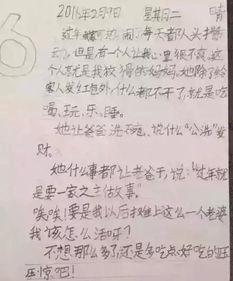 2016年2月9日 星期二 晴
过年啦可热闹,每天都人头攒
动,但是有一个人让我心里很不爽,这
个人就是我妈妈,她除了给
家人发红包外,什么都不干了,就是吃
喝、玩、乐、睡。
她让爸爸洗碗,说什么"公洗"发
财。
她什么事都让老爸干,说:"过年就
是要一家之主做事。"
唉唉!要是我以后摊上这么一个老婆
我该怎么活呀?
不想那么多了,还是多吃点好吃的压
压惊吧!